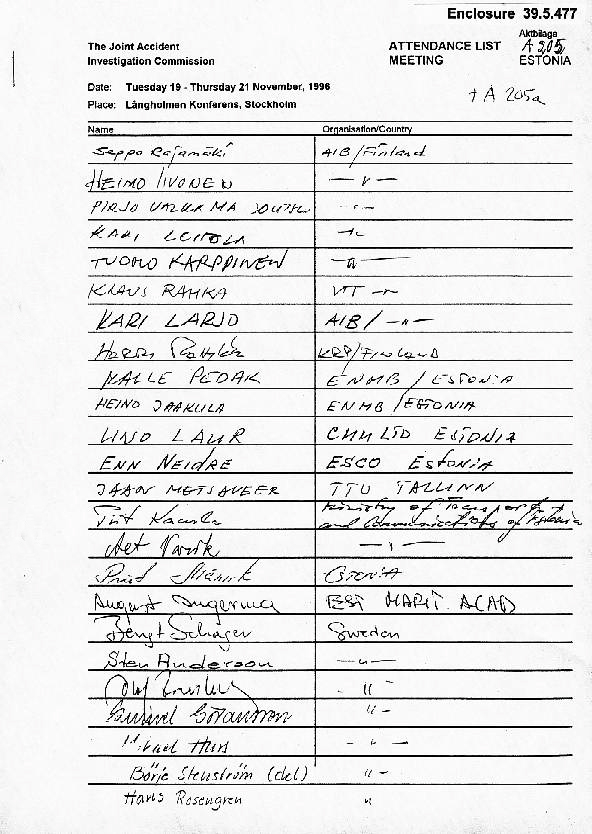 Enclosure 39.5.477
Aktbilaga
The Joint Accident ATTENDANCE LIST A 205
Investigation Commission MEETING ESTONIA
Date: Tuesday 19 - Thursday 21 November, 1996
+ A 205a
Place: Långholmen Konferens, Stockholm
Name Organisation/Country
Seppo Rajamäki AIB/Finland
HEIMO IIVONEN — " —
PIRJO VALKAMA - " -
KARI LEHTOLA - " -
TUOMO KARPPINEN — " —
KLAUS RAHKA VTT - " -
KARI LARJO AIB / - " -
Harri KRP/FINLAND
KALLE PEDAK ENMB / ESTONIA
HEINO JAAKULA ENMB / ESTONIA
UNO LAUR CMM LTD ESTONIA
ENN NEIDRE ESCO ESTONIA
JAAN METSAVEER TTU TALLINN
Tiit Ministry of Transport
and Communications of Estonia
Aet — " —
Priit Männik ESTONIA
August Ingerma EST MARIT. ACAD
Bengt Schager Sweden
Sten Anderson — " —
Olof "
Göransson " -
Mikael Huss - " —
Börje Stenström (del) " -
Hans Rosengren "